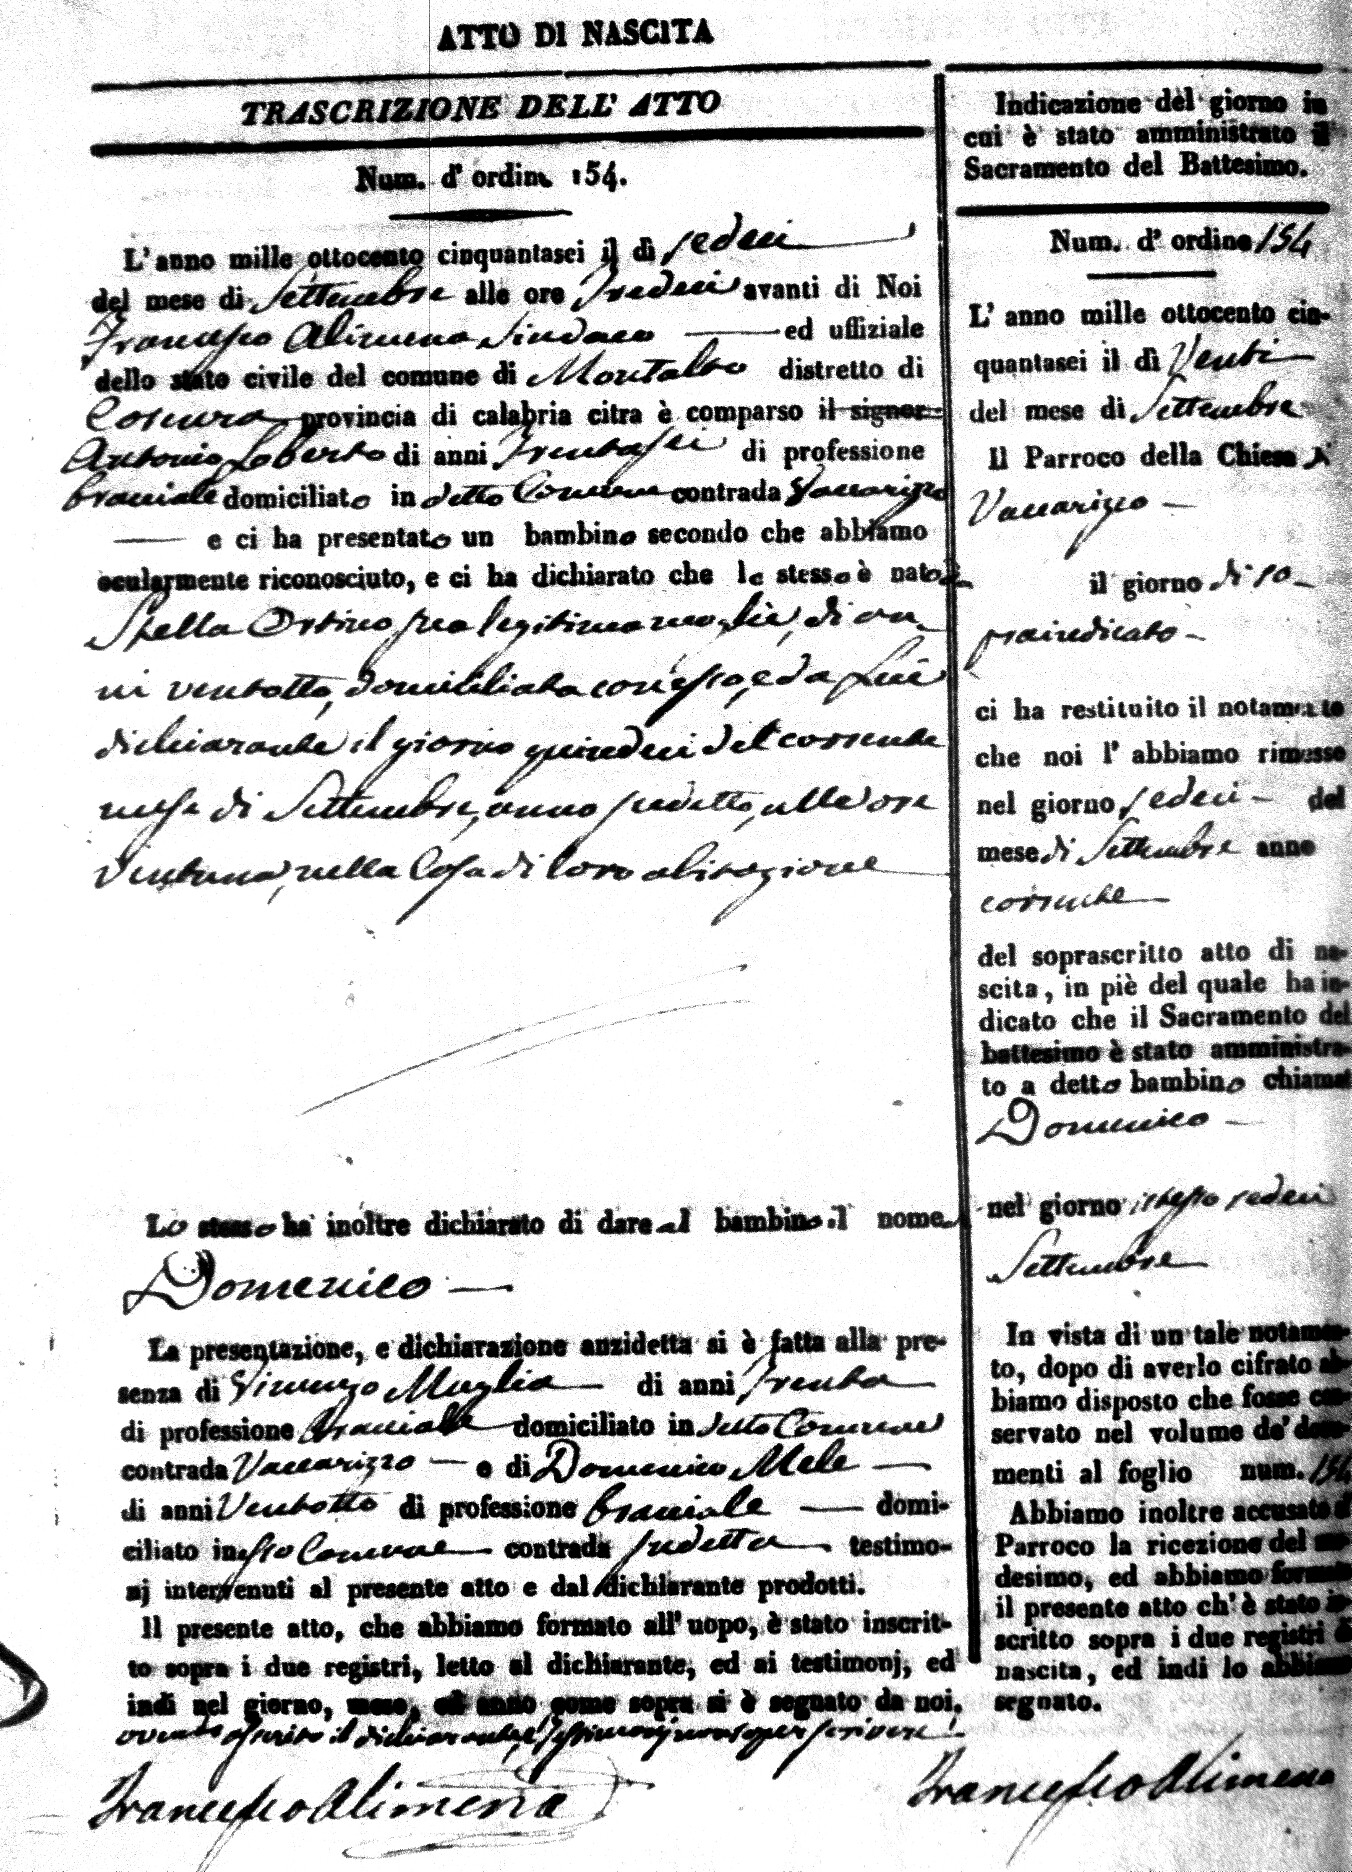 ATTO DI NASCITA
TRASCRIZIONE DELL' ATTO
Num. d' ordine 154.
L' anno mille ottocento cinquantasei il dì sedeci
del mese di Settembre alle ore Tredeci avanti di Noi
Francesco Alimena Sindaco ed uffiziale
dello stato civile del comune di Montalto distretto di
Cosenza provincia di calabria citra è comparso il signor
Antonio Loberto di anni Trentasei di professione
bracciale domiciliato in detto Comune contrada Vaccarizzo
e ci ha presentato un bambino secondo che abbiamo
ocularmente riconosciuto, e ci ha dichiarato che lo stesso è nato da
Stella Ortino sua legitima moglie, di an-
ni ventotto, domiciliata con esso, e da Lui
dichiarante il giorno quindeci del corrente
mese di Settembre, anno sudetto, alle ore
ventuna, nella Casa di loro abitazione
Lo stesso ha inoltre dichiarato di dare al bambino il nome di
Domenico
La presentazione, e dichiarazione anzidetta si è fatta alla pre-
senza di Vincenzo Muglia di anni Trenta
di professione Bracciale domiciliato in detto Comune
contrada Vaccarizzo e di Domenico Mele
di anni Ventotto di professione bracciale domi-
ciliato in esso Comune contrada sudetta testimo-
nj intervenuti al presente atto e dal dichiarante prodotti.
Il presente atto, che abbiamo formato all' uopo, è stato inscrit-
to sopra i due registri, letto al dichiarante, ed ai testimonj, ed
indi nel giorno, mese, ed anno come sopra si è segnato da noi,
avendo asserito il dichiarante, e Testimonj non saper scrivere
Francesco Alimena
Indicazione del giorno in
cui è stato amministrato il
Sacramento del Battesimo.
Num. d' ordine 154
L' anno mille ottocento cin-
quantasei il dì Venti
del mese di Settembre
Il Parroco della Chiesa di
Vaccarizzo
il giorno di so-
praindicato
ci ha restituito il notamento
che noi l' abbiamo rimesso
nel giorno sedeci del
mese di Settembre anno
corrente
del soprascritto atto di na-
scita, in piè del quale ha in-
dicato che il Sacramento del
battesimo è stato amministra-
to a detto bambino chiamat
Domenico
nel giorno istesso sedeci
Settembre
In vista di un tale notamen-
to, dopo di averlo cifrato ab-
biamo disposto che fosse con-
servato nel volume de' docu-
menti al foglio num. 154
Abbiamo inoltre accusato al
Parroco la ricezione del me-
desimo, ed abbiamo formato
il presente atto ch' è stato in-
scritto sopra i due registri di
nascita, ed indi lo abbiamo
segnato.
Francesco Alimena